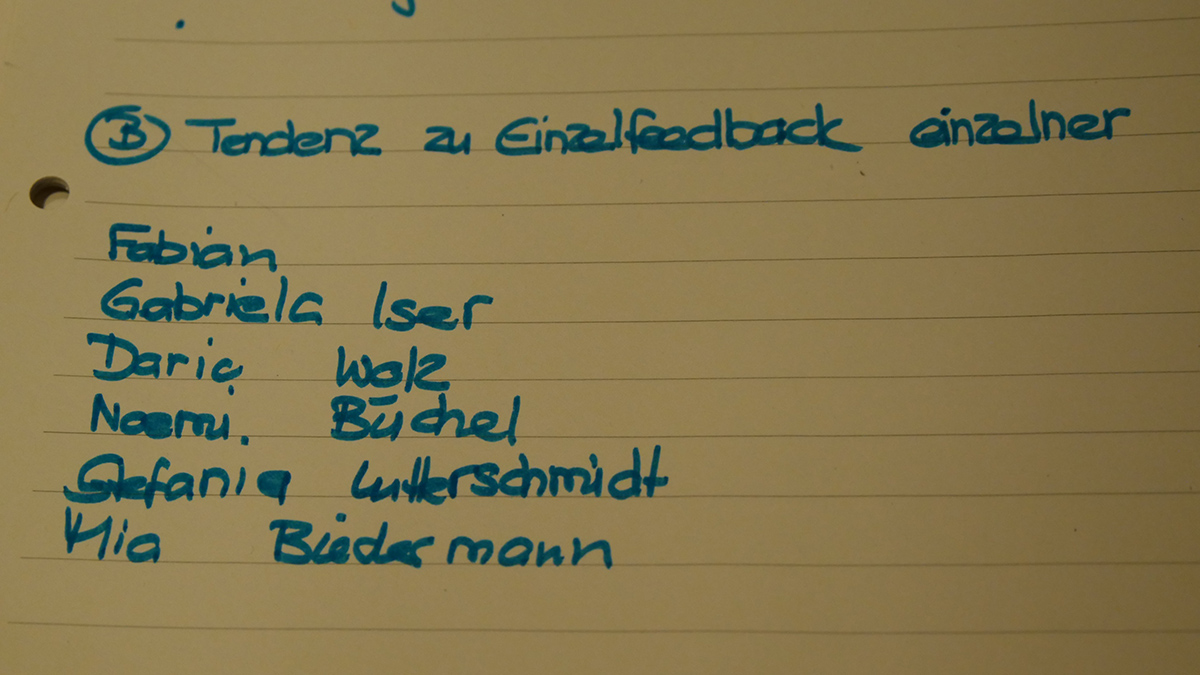 Ⓑ Tendenz zu Einzelfeedback einzelner
Fabian
Gabriela Iser
Daria Walz
Noemi Büchel
Stefania Lutterschmidt
Mia Biedermann